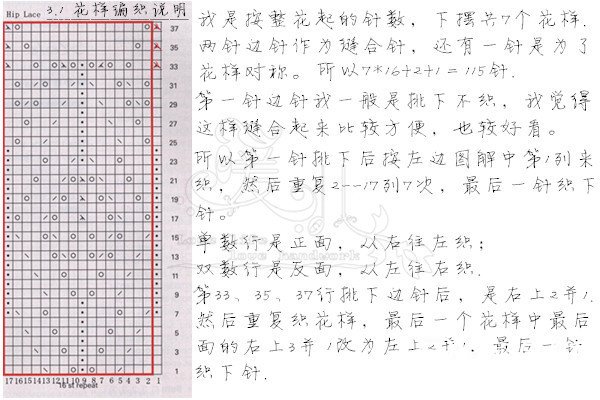 Hip Lace
3.1 花样编织说明
37
35
33
31
29
27
25
23
21
19
17
15
13
11
9
7
5
3
1
17 16 15 14 13 12 11 10 9 8 7 6 5 4 3 2 1
16 st repeat
我是按整花起的针数，下摆共7个花样.
两针边针作为缝合针，还有一针是为了
花样对称。所以7*16+2+1=115针.
第一针边针我一般是挑下不织，我觉得
这样缝合起来比较方便，也较好看。
所以第一针挑下后按左边图解中第1列来
织，然后重复2--17列7次，最后一针织下
针。
单数行是正面，从右往左织；
双数行是反面，从左往右织.
第33、35、37行挑下边针后，是右上2并1.
然后重复织花样，最后一个花样中最后
面的右上3并1改为左上2并1. 最后一针
织下针.